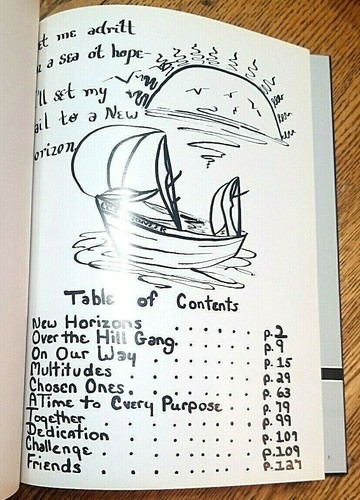 et me adrift
a sea of hope-
I'll set my
ail to a New
orizon
Table of Contents
New Horizons . . . . . . . p.2
Over the Hill Gang. . . . . . . p.9
On Our Way . . . . . . . p.15
Multitudes . . . . . . . p.29
Chosen Ones. . . . . . . p.63
A Time to Every Purpose . . p.79
Together . . . . . . . p.99
Dedication . . . . . . . p.107
Challenge . . . . . . . p.109
Friends . . . . . . . p.127